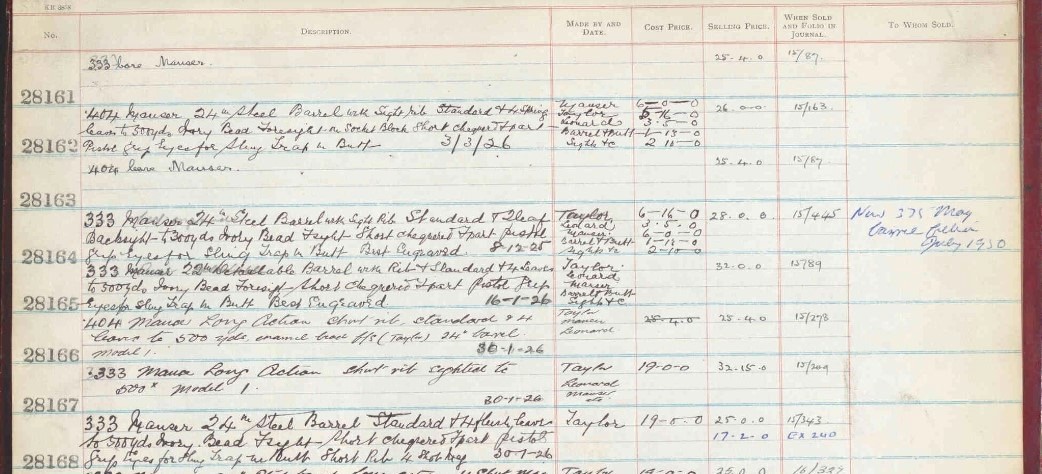 No. DESCRIPTION. MADE BY AND DATE. COST PRICE. SELLING PRICE. WHEN SOLD AND FOLIO IN JOURNAL. TO WHOM SOLD.
333 bore Mauser. 25-4.0 15/89.
28161
.404 Mauser 24in Steel Barrel with Sight rib Standard & 4 Spring Mauser 6-0-0 26-0-0 15/163.
leaves to 500yds Ivory Bead Foresight on Socket Block Short chequered ½ part Taylor Leonard 3-5-0
Pistol Grip Eyes for Sling Trap in Butt 3/3/26 Barrel & Butt 1-13-0
28162 Sights &c 2 10-0
404 bore Mauser. 25.4.0 15/89.
28163
333 Mauser 24in Steel Barrel with Sight Rib Standard & 2 leaf Taylor 6-16-0 28.0.0. 15/445 New 375 Mag
Backsight to 300yds Ivory Bead Fsight Short chequered ½ part pistol Leonard 3.5.0 Barrel July 1930
grip Eyes for Sling Trap in Butt Best Engraved. 8-12-25 Mauser 6-0-0
28164 Barrel & Butt 1-13-0
Sights &c 2-10-0
333 Mauser 22in Barrel with Rib & Standard & 4 Leaves Taylor. 32.0.0 15/89
to 500yds Ivory Bead Foresight Short Chequered ½ part Pistol Grip Leonard Mauser
28165 Eyes for Sling Trap in Butt Best Engraved 16-1-26 Barrel & Butt Sights &c
.404 Mauser Long Action short rib, standard & 4 Taylor 25-4-0 25-4.0 15/278
leaves to 500 yds, enamel bead f/s (Taylor) 24" barrel. Mauser Leonard
28166 Model 1. 30-1-26
.333 Mauser Long Action short rib sighted to Taylor 19-0-0 32.15.0 15/209
500x Model 1. Leonard Mauser etc
28167 30-1-26
333 Mauser 24in Steel Barrel Standard & 4 flush leaves Taylor 19-0-0 25-0.0 15/343
to 500yds Ivory Bead Fsight Short chequered ½ part Pistol 17-2-0 EX 240
28168 Grip Eyes for Sling Trap in Butt Short Rib 4 Shot Mag 30-1-26
Taylor 19-0-0 25.0.0 16/329